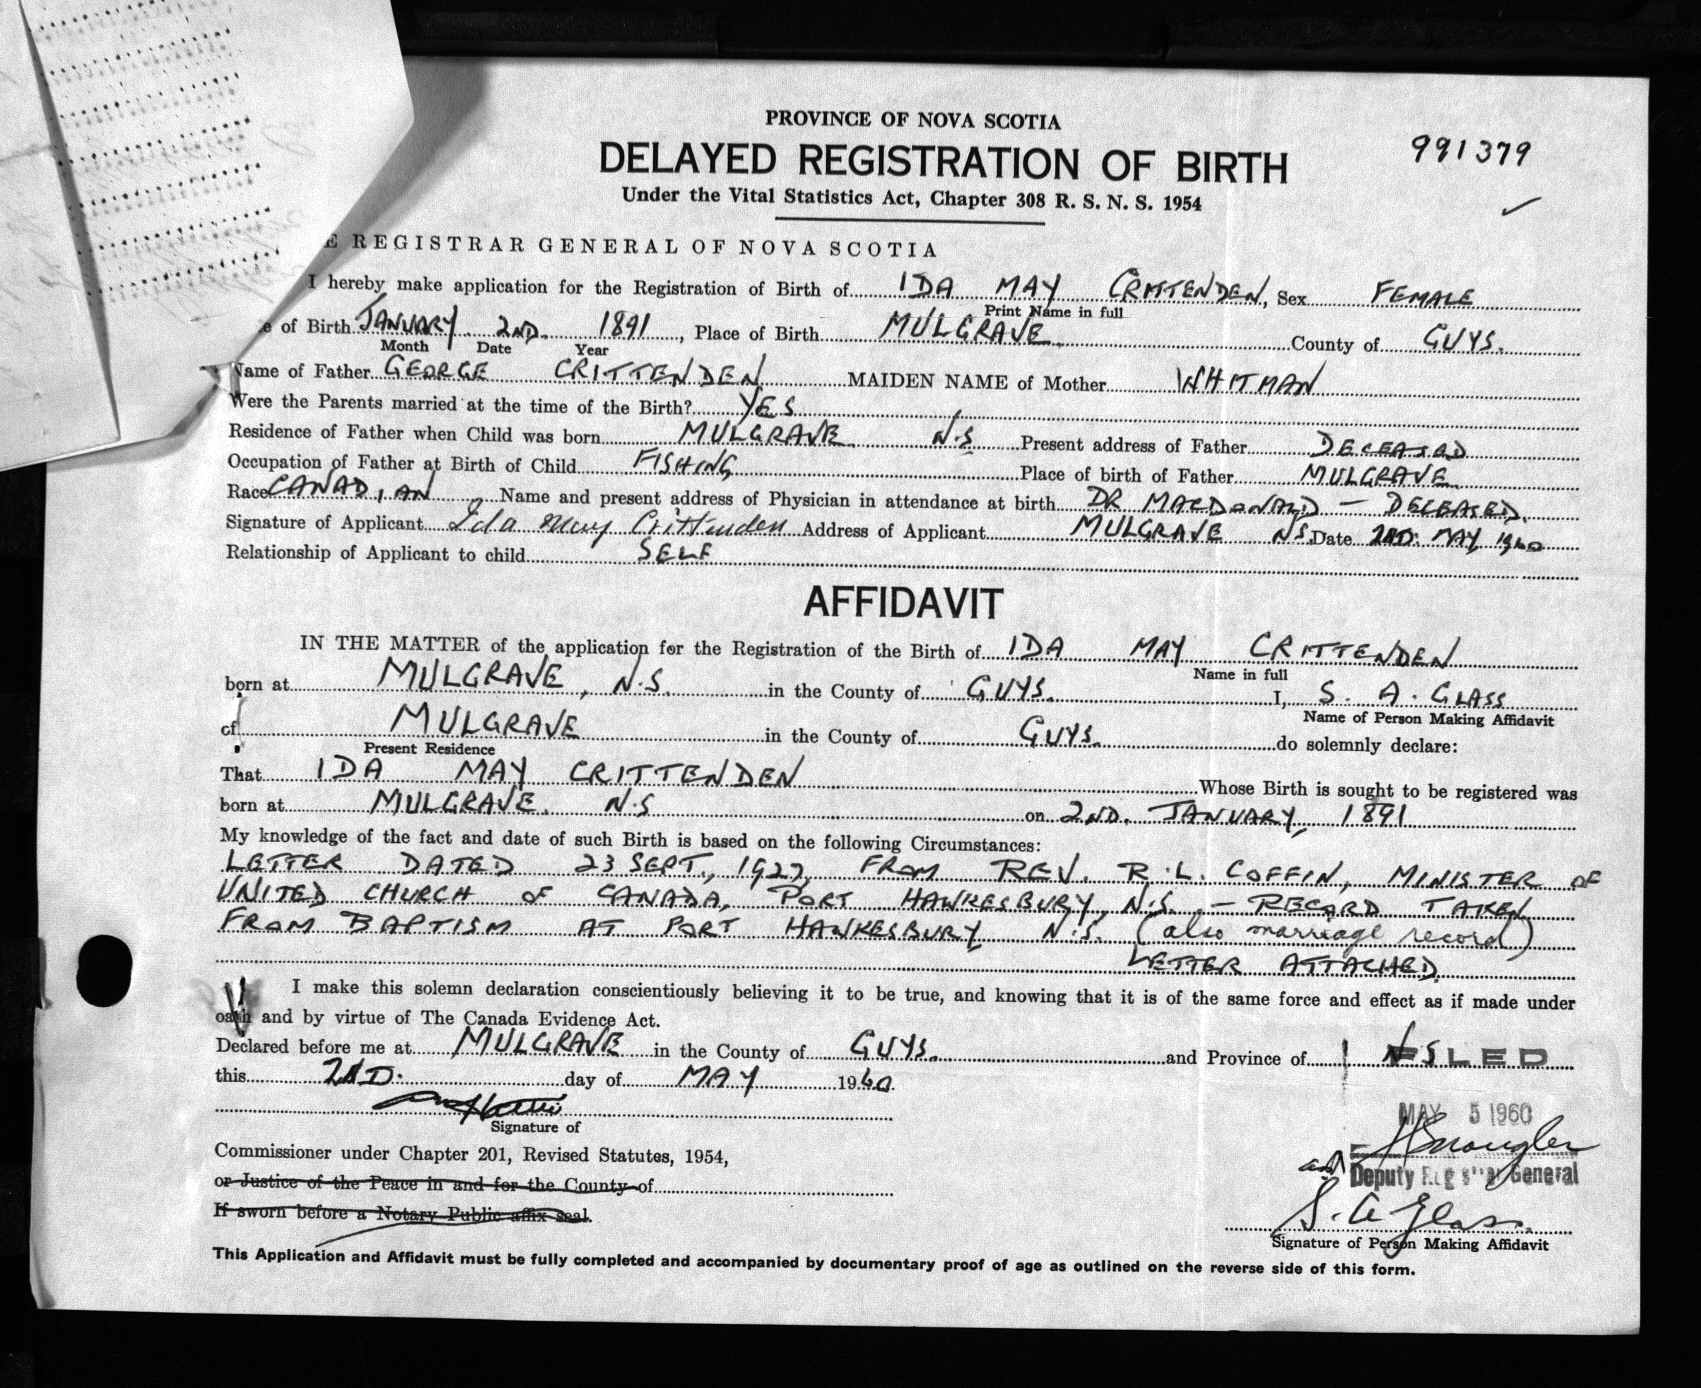 PROVINCE OF NOVA SCOTIA
991379
DELAYED REGISTRATION OF BIRTH
Under the Vital Statistics Act, Chapter 308 R. S. N. S. 1954
E REGISTRAR GENERAL OF NOVA SCOTIA
I hereby make application for the Registration of Birth of IDA MAY CRITTENDEN, Sex FEMALE
Print Name in full
e of Birth JANUARY 2ND. 1891, Place of Birth MULGRAVE County of GUYS.
Month Date Year
Name of Father GEORGE CRITTENDEN MAIDEN NAME of Mother WHITMAN
Were the Parents married at the time of the Birth? YES
Residence of Father when Child was born MULGRAVE N.S Present address of Father DECEASED
Occupation of Father at Birth of Child FISHING Place of birth of Father MULGRAVE
Race CANADIAN Name and present address of Physician in attendance at birth DR MACDONALD — DECEASED.
Signature of Applicant Ida May Crittenden Address of Applicant MULGRAVE N.S. Date 2ND. MAY 1960
Relationship of Applicant to child SELF
AFFIDAVIT
IN THE MATTER of the application for the Registration of the Birth of IDA MAY CRITTENDEN
Name in full
born at MULGRAVE, N.S. in the County of GUYS. I, S. A. GLASS
Name of Person Making Affidavit
of MULGRAVE in the County of GUYS. do solemnly declare:
Present Residence
That IDA MAY CRITTENDEN Whose Birth is sought to be registered was
born at MULGRAVE. N.S on 2ND. JANUARY, 1891
My knowledge of the fact and date of such Birth is based on the following Circumstances:
LETTER DATED 23 SEPT., 1927, FROM REV. R.L. COFFIN, MINISTER OF
UNITED CHURCH OF CANADA, PORT HAWKESBURY, N.S. — RECORD TAKEN
FROM BAPTISM AT PORT HAWKESBURY N.S. (also marriage record)
LETTER ATTACHED
I make this solemn declaration conscientiously believing it to be true, and knowing that it is of the same force and effect as if made under
oath and by virtue of The Canada Evidence Act.
Declared before me at MULGRAVE in the County of GUYS. and Province of N S
FILED
this 2ND. day of MAY 1960.
MAY 5 1960
Signature of
Commissioner under Chapter 201, Revised Statutes, 1954,
and Deputy Registrar General
or Justice of the Peace in and for the County of
If sworn before a Notary Public affix seal.
S. A Glass.
Signature of Person Making Affidavit
This Application and Affidavit must be fully completed and accompanied by documentary proof of age as outlined on the reverse side of this form.